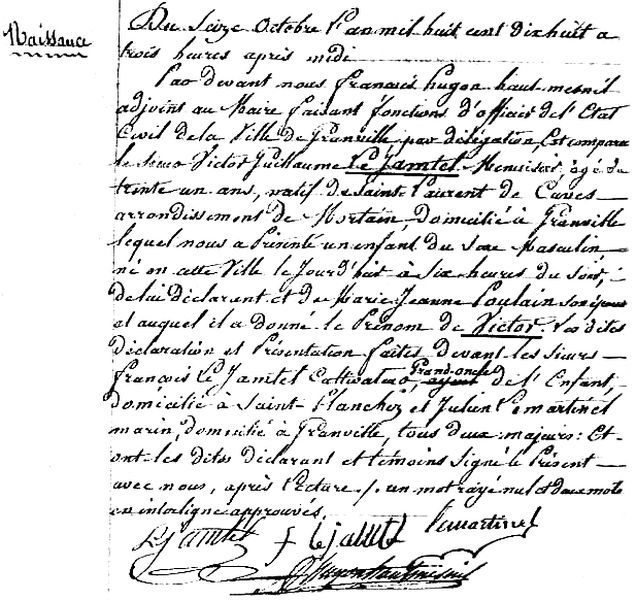 Naissance
Du Seize Octobre l'an mil huit cent dix huit a
trois heures apres midi
Par devant nous francois hugon haut-mesnil
adjoint au Maire faisant fonctions d'officier de l'Etat
Civil de la Ville de Granville par délégation Est comparu
le sieur Victor Guillaume Le Jamtel Menuisier, agé de
trente un ans, natif de Saint Laurent de Cuves
arrondissement de Mortain, domicilié à Granville
lequel nous a Présenté un enfant du Sexe Masculin
né en cette Ville le Jour d'hier à Six heures du Soir,
de lui déclarant et de Marie Jeanne Poulain Son épouse
et auquel il a donné le Prénom de Victor. Les dites
déclaration et Présentation faites devant les sieurs
françois Le Jamtel Cultivateur, Grand-oncle de l'Enfant,
domicilié à Saint-Planchez et Julien Lemartinel
marin, domicilié à Granville, tous deux majeurs: Et
ont les dites déclarant et témoins Signé le Présent
avec nous, après Lecture /. un mot rayé nul et deux mots
en interligne approuvés.
LeJamtel f LeJamtel Lemartinel
Hugon hautmesnil